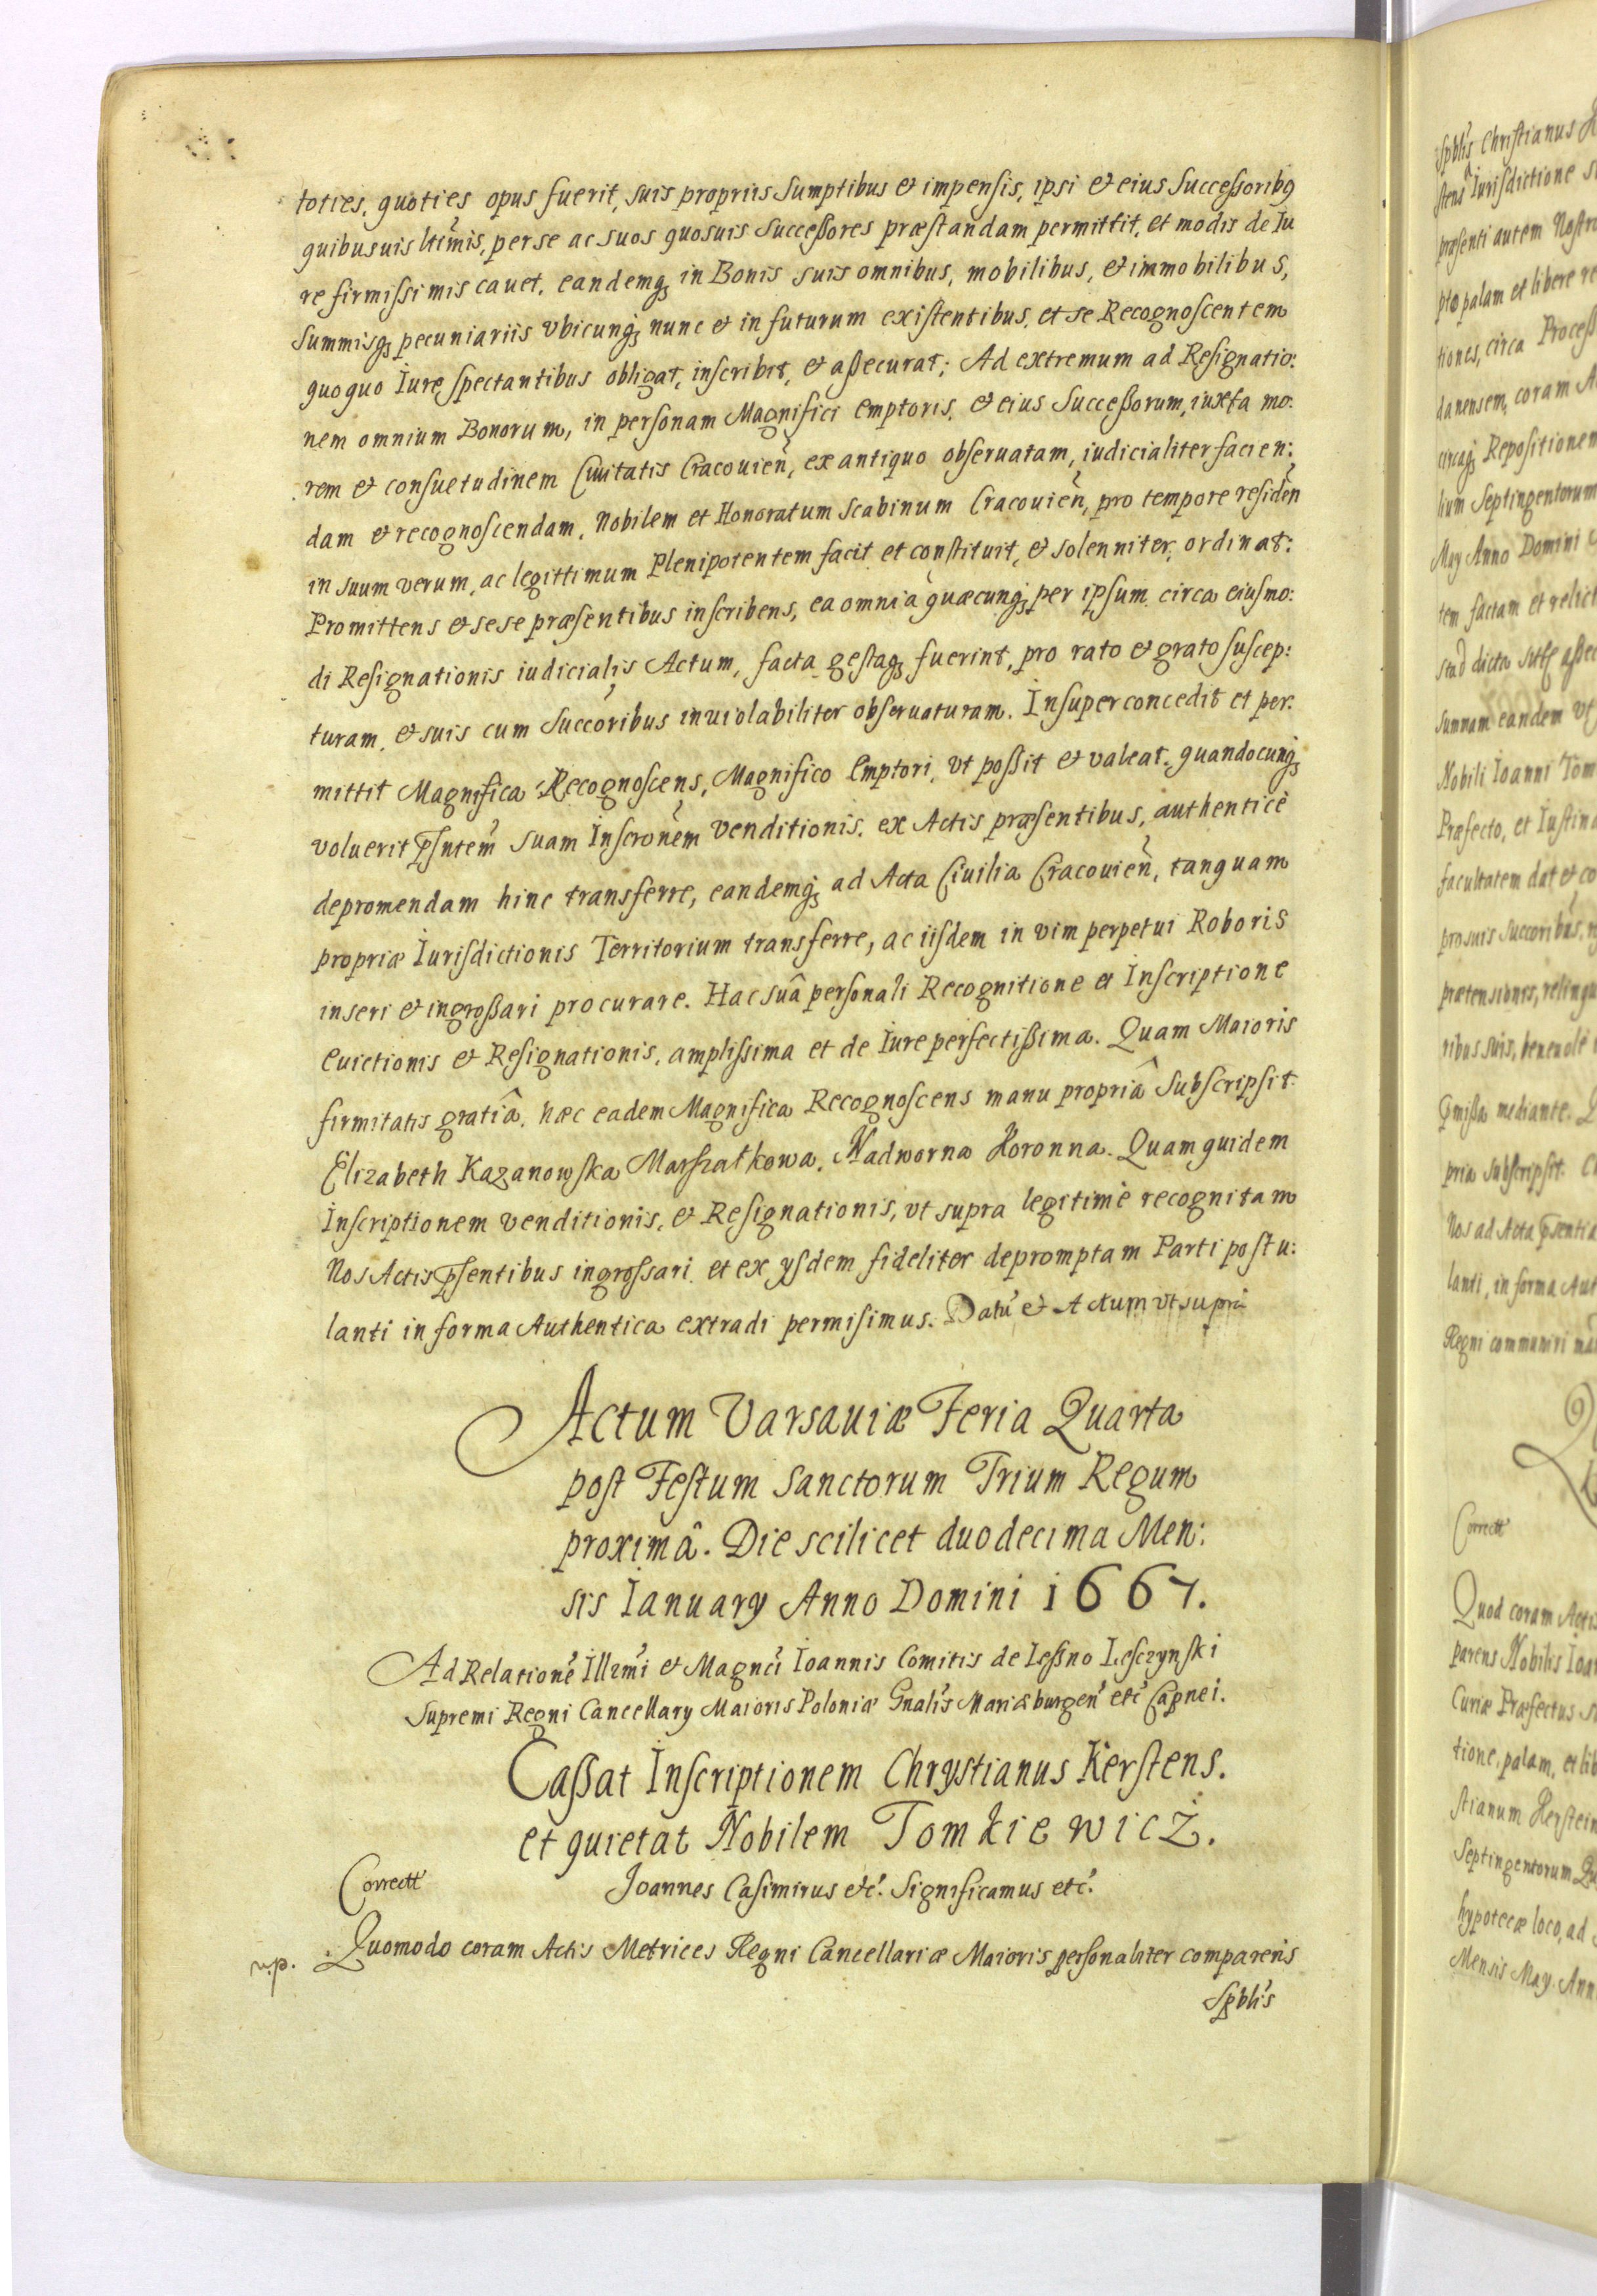 toties, quoties opus fuerit, suis proprijs Sumptibus & impensis, ipsi & eius Successoribq
quibusuis ltimis, per se ac suos quosuis Successores præstandam permittit, et modis de Iu
re firmissimis cauet, eandemq; in Bonis suis omnibus, mobilibus, & immobilibus,
Summisq; pecuniariis vbicunq; nunc & in futurum existentibus, et se Recognoscentem
quoquo Iure spectantibus obligat, inscribit, & assecurat; Ad extremum ad Resignatio:
nem omnium Bonorum, in personam Magnifici Emptoris, & eius Successorum, iuxta mo:
rem & consuetudinem Ciuitatis Cracouien, ex antiquo obseruatam, iudicialiter facien:
dam & recognoscendam, Nobilem et Honoratum Scabinum Cracouien, pro tempore residen
in suum verum, ac legittimum Plenipotentem facit et constituit, & solenniter ordinat:
Promittens & sese præsentibus inscribens, ea omnia quæcunq; per ipsum circa eiusmo:
di Resignationis iudicialis Actum, facta gestaq; fuerint, pro rato & grato suscep:
turam, & suis cum Succoribus inuiolabiliter obseruaturam. Insuper concedit et per:
mittit Magnifica Recognoscens, Magnifico Emptori, vt possit & valeat, quandocunq;
voluerit psntem suam Inscronem Venditionis, ex Actis præsentibus, authenticè
depromendam hinc transferre, eandemq; ad Acta Ciuilia Cracouien, tanquam
propriæ Iurisdictionis Territorium transferre, ac iisdem in vim perpetui Roboris
inseri & ingrossari procurare. Hac suâ personali Recognitione et Inscriptione
Euictionis & Resignationis, amplissima et de Iure perfectissima. Quam Maioris
firmitatis gratiâ, hæc eadem Magnifica Recognoscens manu propriâ Subscripsit.
Elizabeth Kazanowska Marszałkowa, Nadworna Koronna. Quam quidem
Inscriptionem venditionis, & Resignationis, vt supra legitimè recognitam
Nos Actis psentibus ingrossari, et ex ysdem fideliter depromptam Parti postu:
lanti in forma Authentica extradi permisimus. Datu & Actum vt supra
Actum Varsauiæ Feria Quarta
post Festum Sanctorum Trium Regum
proximâ. Die scilicet duodecima Men:
sis Ianuary Anno Domini 1667.
Ad Relatione Illrmi & Magnci Ioannis Comitis de Lessno Lesczynski
Supremi Regni Cancellary Maioris Poloniæ Gnalis Mariæburgen etc Capnei.
Cassat Inscriptionem Chrystianus Kerstens.
et quietat Nobilem Tomkiewicz.
Correctt
Joannes Casimirus etc. Significamus etc.
n.p. Quomodo coram Actis Metrices Regni Cancellariæ Maioris personaliter comparens
Spblis
Spblis Christianus
stens Iurisdictione
præsenti autem Nostr
pto palam et libere re
tiones, circa Process
danensem, coram
circaq; Repositionem
lium Septingentorum
May Anno Domini
tem factam et relict
dicta
summam eandem vt
Nobili Ioanni Tom
Præfecto, et Iustin
facultatem dat & co
pro suis Succoribus,
prætensiones, relinqu
ribus suis, beneuole
pmissa mediante.
pria subscripsit.
Nos ad Acta psentia
lanti, in forma Aut
Regni communiri
Correctt
Quod coram Actis
parens Nobilis Ioan
Curiæ Præfectus
tione, palam, et lib
stianum Kerstein
Septingentorum
hypotecæ loco, ad
Mensis May Ann